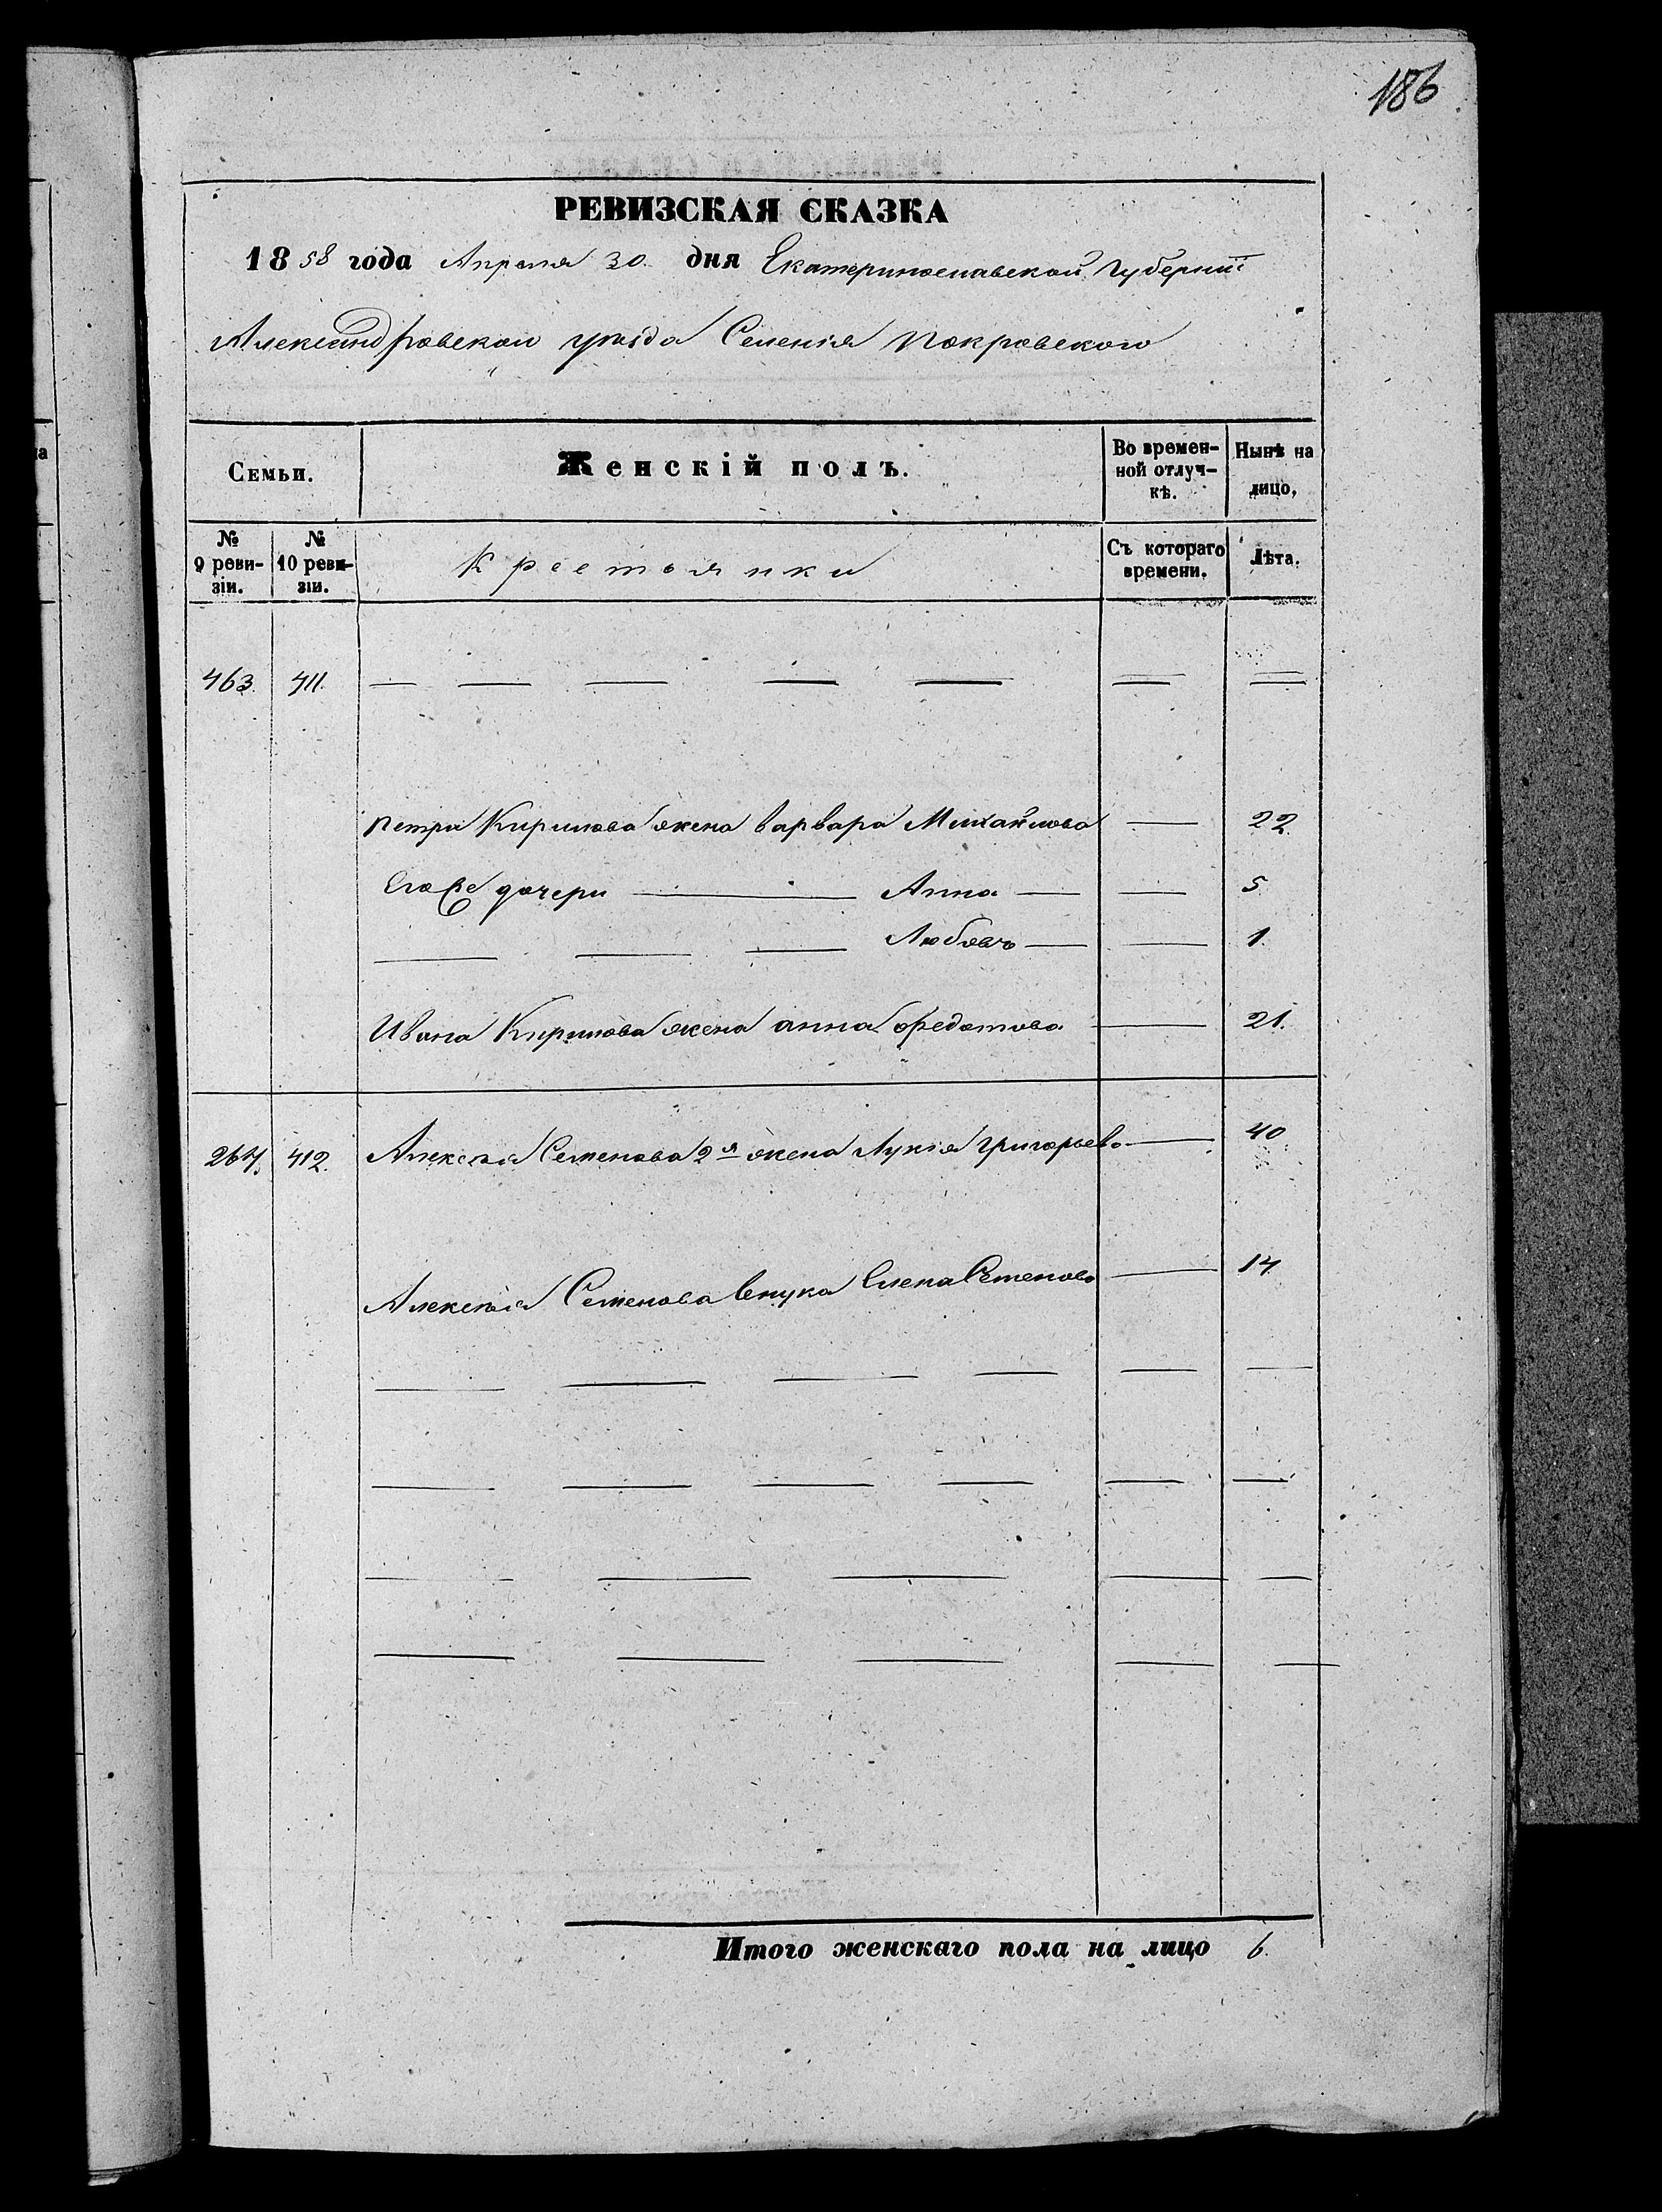 186
РЕВИЗСКАЯ СКАЗКА
1858 года Апреля 30 дня Екатеринославской Губерніи
Александровскаго уѣзда Селенія Покровского
Семьи. Женскій полъ. Во времен- Нынѣ на
ной отлуч- лицо,
кѣ.
№ № Съ котораго Лѣта.
9 реви- 10 реви- Крестьянки времени.
зіи. зіи.
463. 411. — — — — — — —
Петра Кирилова жена Варвара Михайлова — 22
Его же дочери — Анна — — 5
— — — Любовь — — 1.
Ивана Кирилова жена Анна Федотова — 21.
267. 412. Алексѣя Семенова 2я жена Лукія Григорьева — 40
Алексѣя Семенова внука Елена Семенова — 14
— — — — — —
— — — — — —
— — — — —
— — — — —
Итого женскаго пола на лицо 6.